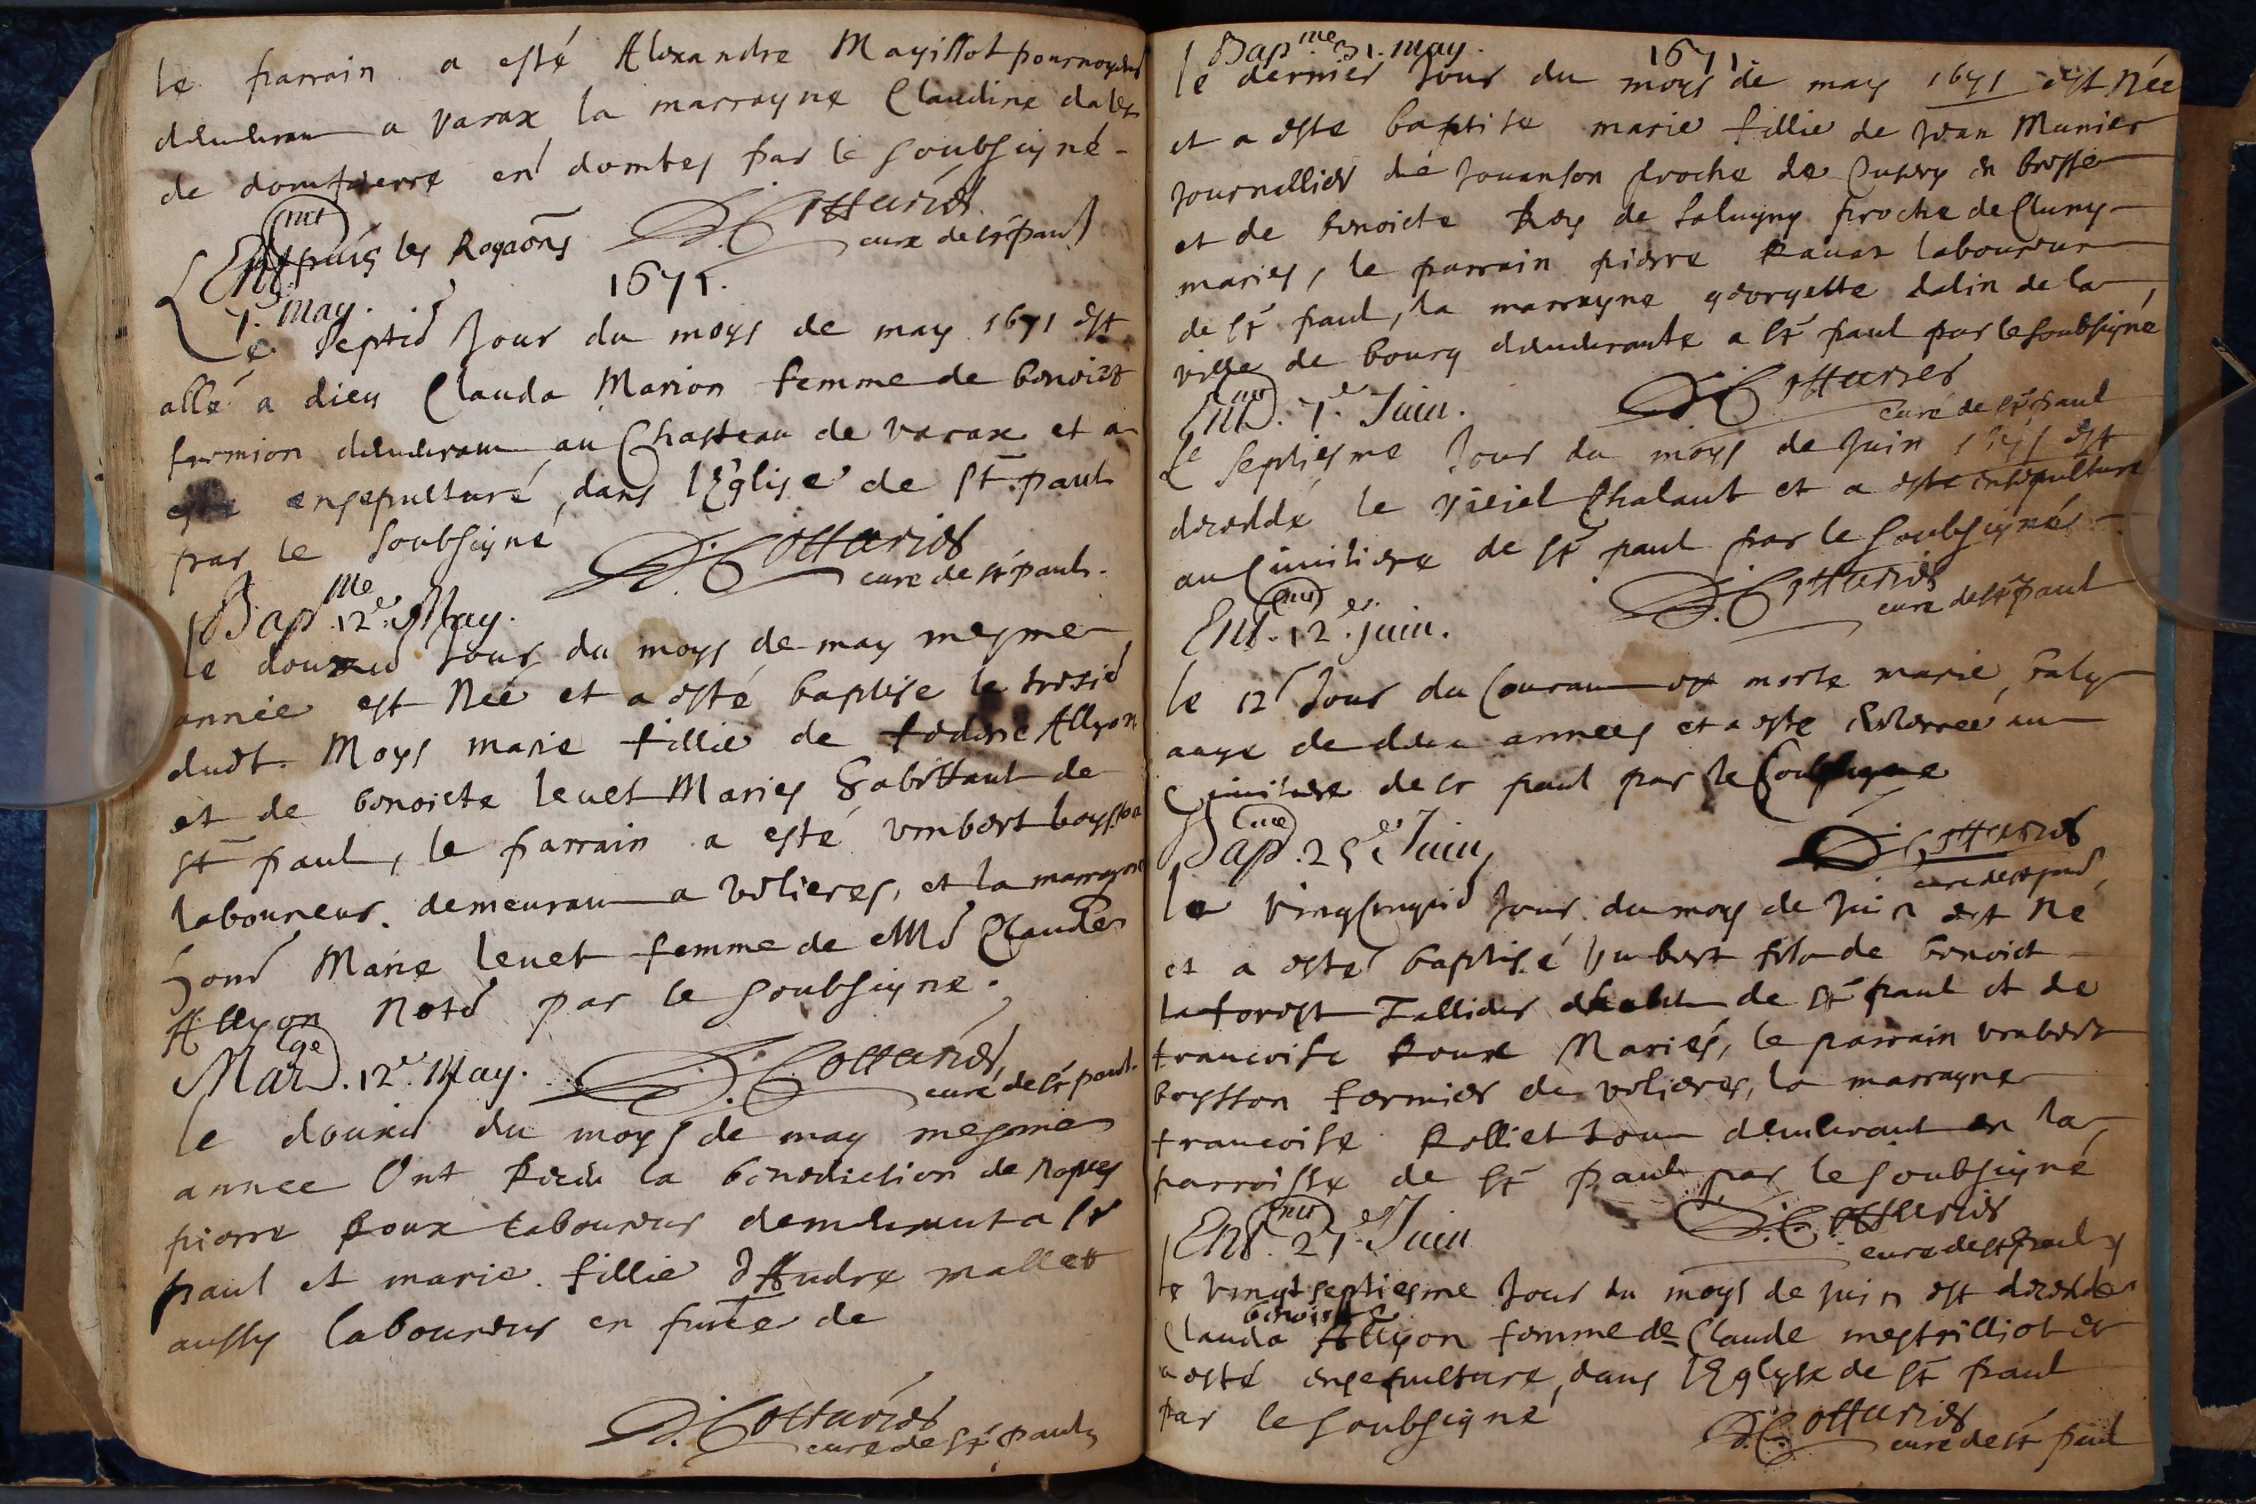 le parrain a esté Alexandre Mayissot
a varax la marrayne Claudine
de dompierre en dombes par le soubsigné
D. Cottarier
cure de st paul
Ent
depuis les Rogaõns
1671.
7. may.
Le septie Jour du moys de may 1671 est
allé a dieu Clauda Marion femme de benoict
fermion demeurant au Chasteau de varax et a
esté ensepulturé dans lEglise de St. paul
par le soubsigné
D. Cottarier
cure de st paul.
Bapme 12e May.
le douzie Jour du moys de may mesme
année est Née et a esté baptise le tresie
dudt. Moys marie fillie de federic Allyon
et de benoicte leuet Maries habittant de
st paul, le parrain a esté vmbert boysson
laboureur demeurant a volieres, et la marrayne
hond Marie leuet femme de Me Claude
Allyon Note par le soubsigne.
Marge. 12e. May.
D. Cottarier
curé de st paul.
le douxie du moys de may mesme
annee Ont Receu la benediction de nopces
pierre Roux laboureur demeurant a st
paul et marie fillie d'Andre mallet
aussy laboureur en presce de
D. Cottarier
cure de st paul
Bapme 31. may.
1671
le dernier Jour du moys de may 1671 est Née
et a este baptise marie fillie de Jean Munier
Journallier de Jouanson proche de Cusery en bresse
et de benoicte Rey de saluigny proche de Cluny
maries, le parrain pierre Rauax laboureur
de st paul, la marrayne georgette dalin de la
ville de bourg demeurante a st paul par le soubsigne
D. Cottarier
curé de st paul
Ent. 7e Juin.
Le septiesme Jour du moys de Juin 1671 est
decedde le vieiel Chalaut et a este ensepulture
au Cimitiere de st paul par le soubsigné
D. Cottarier
cure de st paul
Ent. 12e. juin.
le 12e Jour du Courant est morte marie Faly
aage de deux annees et a este Enterree au
Cimitiere de st paul par le soubsigne
D. Cottarier
cure de st paul
Bapme. 25e Juin
le vingcinquie Jour du moys de Juin est Né
et a esté baptisé humbert fils de benoict
laforest Tallieur de st paul et de
francoise Roux Mariés, le parrain vmbert
boysson fermier de volieres, la marrayne
francoise Rolliet demeurant en la
parroisse de st paul par le soubsigné
D. Cottarier
cure de st paul
Ent. 27e. Juin
le vingt septiesme Jour du moys de juin est decedde
benoiste
Clauda Allyon femme de Claude mestrilliot et
a esté ensepulture dans lEglyse de st paul
par le soubsigné
D. Cottarier
cure de st paul